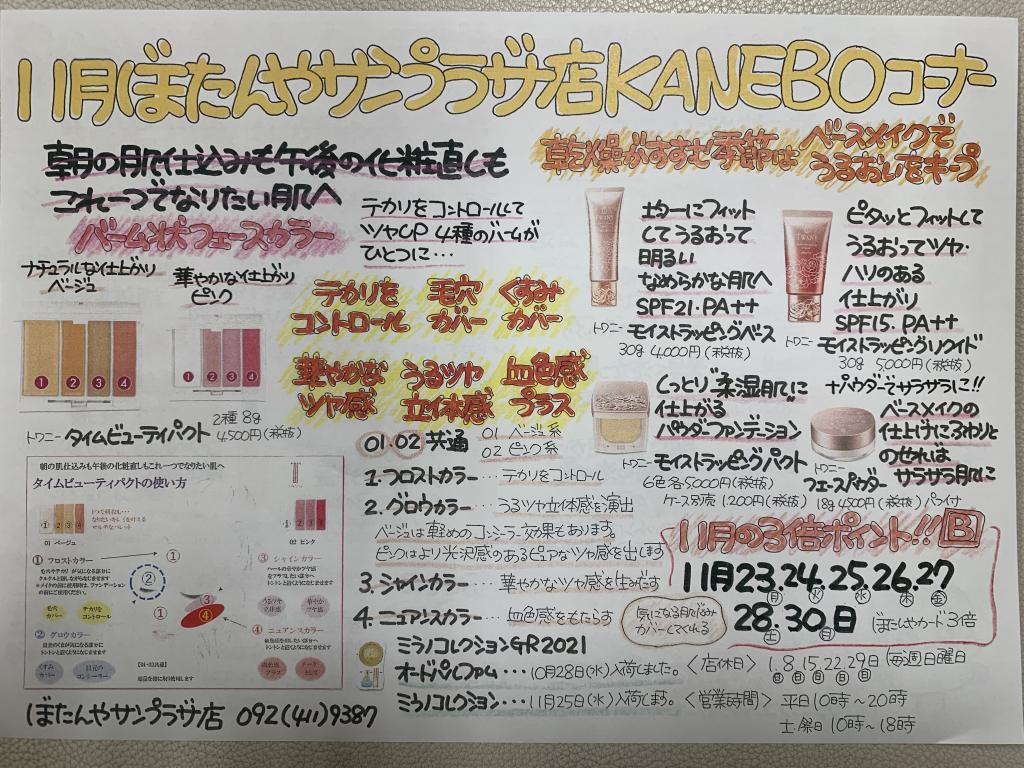 11月ぼたんやサンプラザ店KANEBOコーナー
朝の肌仕込みも午後の化粧直しも
これ一つでなりたい肌へ
バーム状フェースカラー
ナチュラルな仕上がり
ベージュ
華やかな仕上がり
ピンク
テカリをコントロールして
ツヤUP 4種のバームが
ひとつに…
テカリを
コントロール
毛穴
カバー
くすみ
カバー
華やかな
ツヤ感
うるツヤ
立体感
血色感
プラス
① ② ③ ④
① ② ③ ④
トワニー タイムビューティパクト
2種 8g
4,500円(税抜)
朝の肌仕込みも午後の化粧直しもこれ一つでなりたい肌へ
タイムビューティパクトの使い方
01 ベージュ
02 ピンク
① フロストカラー
毛穴カバー
テカリをコントロール
② グロウカラー
くすみカバー
目元のコンシーラー
③ シャインカラー
うるツヤ立体感
華やかツヤ感
④ ニュアンスカラー
血色感プラス
チークとして
【01・02共通】
ぼたんやサンプラザ店 092(411)9387
01.02 共通
01 ベージュ系
02 ピンク系
1.フロストカラー…テカリをコントロール
2.グロウカラー…うるツヤ立体感を演出
ベージュは軽めのコンシーラー効果もあります。
ピンクはより光沢感のあるピュアなツヤ感を出します
3.シャインカラー…華やかなツヤ感を生みだす
4.ニュアンスカラー…血色感をもたらす
気になる肌悩み
カバーしてくれる
ミラノコレクションGR2021
オードパルファム…10月28日(水)入荷しました。
ミラノコレクション…11月25日(水)入荷します。
乾燥がすすむ季節は ベースメイクで
うるおいをキープ
TWANY
均一にフィット
してうるおって
明るい
なめらかな肌へ
SPF21・PA++
トワニー モイストラッピングベース
30g 4,000円(税抜)
TWANY
ピタッとフィットして
うるおってツヤ・
ハリのある
仕上がり
SPF15. PA++
トワニー モイストラッピングリクイド
30g 5,000円(税抜)
しっとり"柔湿肌"に
仕上がる
パウダーファンデーション
トワニー モイストラッピングパクト
6色各5,000円(税抜)
ケース別売 1,200円(税抜)
パウダーでサラサラに!!
ベースメイクの
仕上げにふわりと
のせれば
サラサラ肌に
トワニー フェースパウダー
18g 4,500円(税抜) パフ付
11月の3倍ポイント!!日
11月23.24.25.26.27
月 火 水 木 金
28.30日 ぼたんやカード3倍
土 月
〈店休日〉 1.8.15.22.29日(毎週日曜日
日 日 日 日 日
〈営業時間〉 平日10時〜20時
土・祭日 10時〜18時